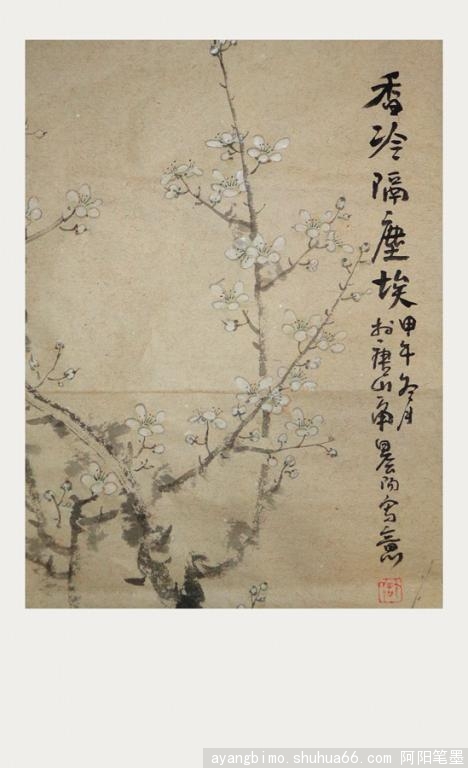 香冷隔塵埃
甲午冬月
於唐山 晨陽寫意
ayangbimo.shuhua66.com 阿阳笔墨